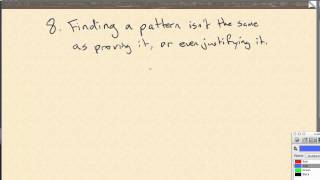 8. Finding a pattern isn't the same
as proving it, or even justifying it.